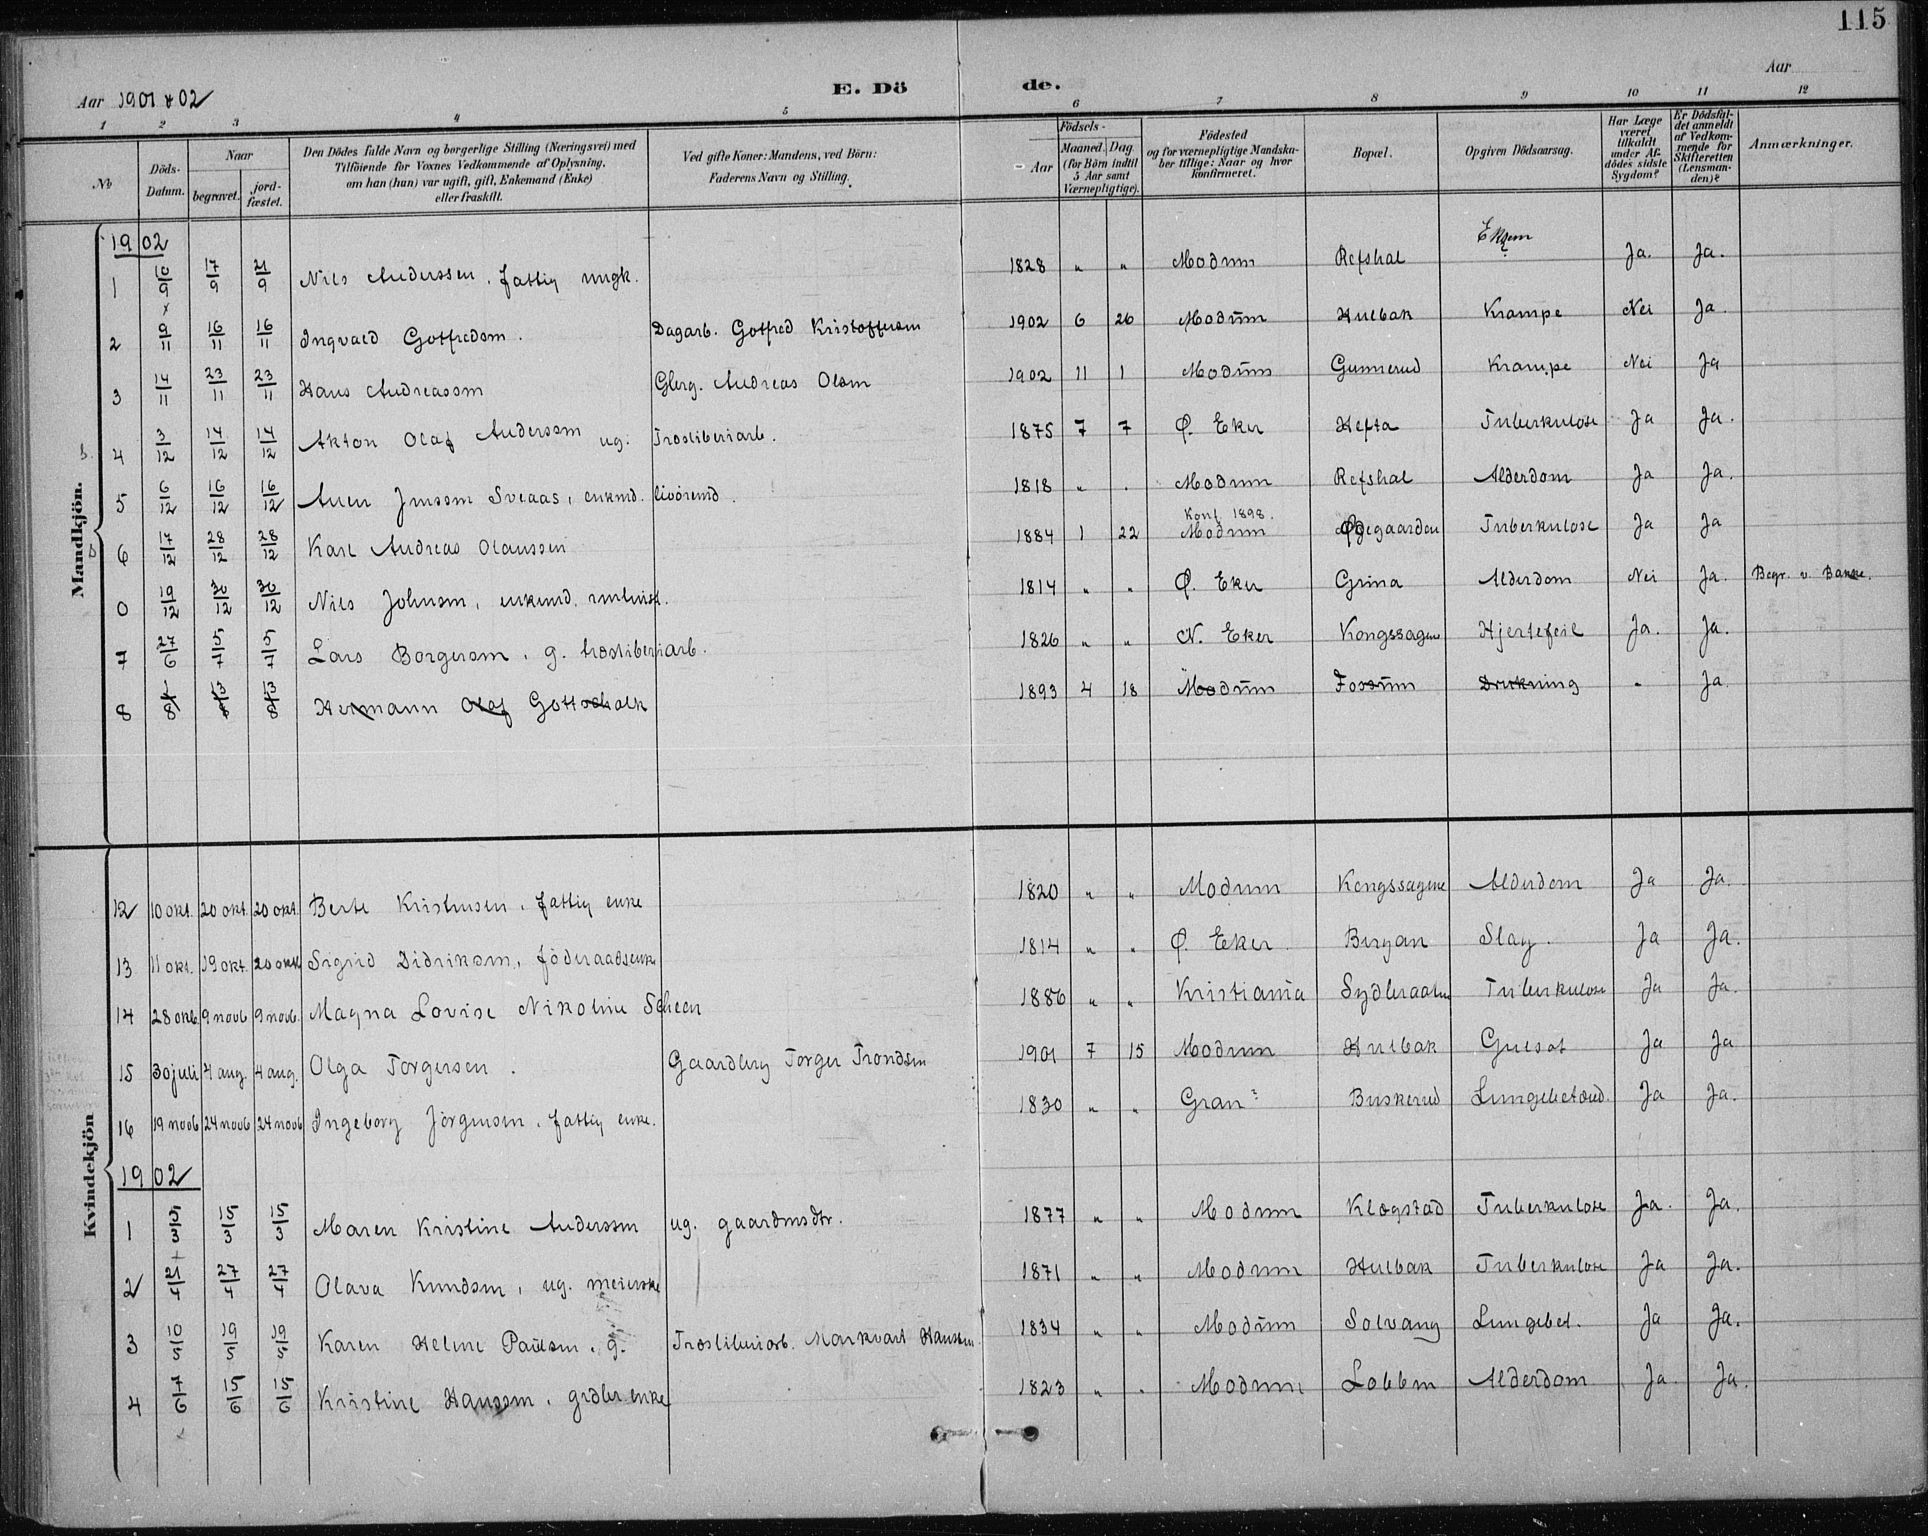 115
Aar 1901 & 02 E. Dö de. Aar
1 2 3 4 5 6 7 8 9 10 11 12
No Döds-Datum. Naar begravet. jordfæstet. Den Dödes fulde Navn og borgerlige Stilling (Næringsvei) med Tilföiende for Voxnes Vedkommende af Oplysning, om han (hun) var ugift, gift, Enkemand (Enke) eller fraskilt. Ved gifte Koner: Mandens, ved Börn: Faderens Navn og Stilling. Födsels- Aar Maaned. Dag (for Börn indtil 5 Aar samt Værnepligtige). Födested og for værnepligtige Mandskaber tillige: Naar og hvor konfirmeret. Bopæl. Opgiven Dödsaarsag. Har Læge været tilkaldt under Afdödes sidste Sygdom? Er Dödsfaldet anmeldt af Vedkommende for Skifteretten (Lensmanden)? Anmærkninger.
Mandkjön.
1902
1 10/9 17/9 21/9 Nils Anderssen, fattig ungk. 1828 " " Modum Refshal Ekzem Ja. Ja.
2 9/11 16/11 16/11 Ingvald Gotfredsen. Dagarb. Gotfred Kristoffersen 1902 6 26 Modum Hulbak Krampe Nei Ja.
3 14/11 23/11 23/11 Hans Andreassen Gbrg. Andreas Olsen 1902 11 1 Modum Gunnerud Krampe Nei Ja
4 3/12 14/12 14/12 Akton Olaf Anderssen ug. Træsliberiarb. 1875 7 7 Ø. Eker Hefta Tuberkulose Ja Ja.
5 6/12 16/12 16/12 Auen Jenssen Sveaas, enkmd. livöremd. 1818 " . Modum Refshal Alderdom Ja Ja.
6 17/12 28/12 28/12 Karl Andreas Olaussen 1884 1 22 Konf. 1898. Modum Ødegaarden Tuberkulose Ja Ja
0 19/12 30/12 30/12 Nils Johnsen, enkemd. 1814 " " Ø. Eker Grina Alderdom Nei Ja. Begr. v. Bakke.
7 27/6 5/7 5/7 Lars Borgersen, g. træsliberiarb. 1826 " " N. Eker Kongssagene Hjertefeil Ja. Ja.
8 13/8 13/8 Hermann Olaf Gottschalk 1893 4 18 Modum Fossum Drukning - Ja
Kvindekjön
12 10 okt. 20 okt. 20 okt. Berte Kristensen, fattig enke 1820 " " Modum Kongssagene Alderdom Ja Ja.
13 11 okt. 19 okt. 20 okt. Sigrid Didriksen, föderaadsenke 1814 " " Ø. Eker. Bergan Slag. Ja Ja.
14 28 okt. 9 novb 9 novb. Magna Lovise Nikoline Scheen 1886 " " Kristiania Sydbraaten Tuberkulose Ja Ja.
15 30 juli 4 aug. 4 aug. Olga Torgersen. Gaardbrg Torger Trondsen 1901 7 15 Modum Hulbak Gulsot Ja Ja
16 19 novb 24 novb 24 novb Ingeborg Jörgensen, fattig enke. 1830 " " Gran? Buskerud Lungebetænd. Ja Ja.
1902
1 5/3 15/3 15/3 Maren Kristine Anderssen ug. gaardmsdtr. 1877 " " Modum Klogstad Tuberkulose Ja. Ja.
2 21/4 27/4 27/4 Olava Knudsen, ug. meierske 1871 " " Modum Hulbak Tuberkulose Ja Ja.
3 10/5 19/5 19/5 Karen Heline Paulsen. g. Træsliberiarb. Markvart Hanssen. 1834 " " Modum Solvang Lungebet. Ja Ja.
4 7/6 15/6 15/6 Kristine Hanssen, grdbr. enke 1823 " " Modum Lobben Alderdom Ja. Ja.